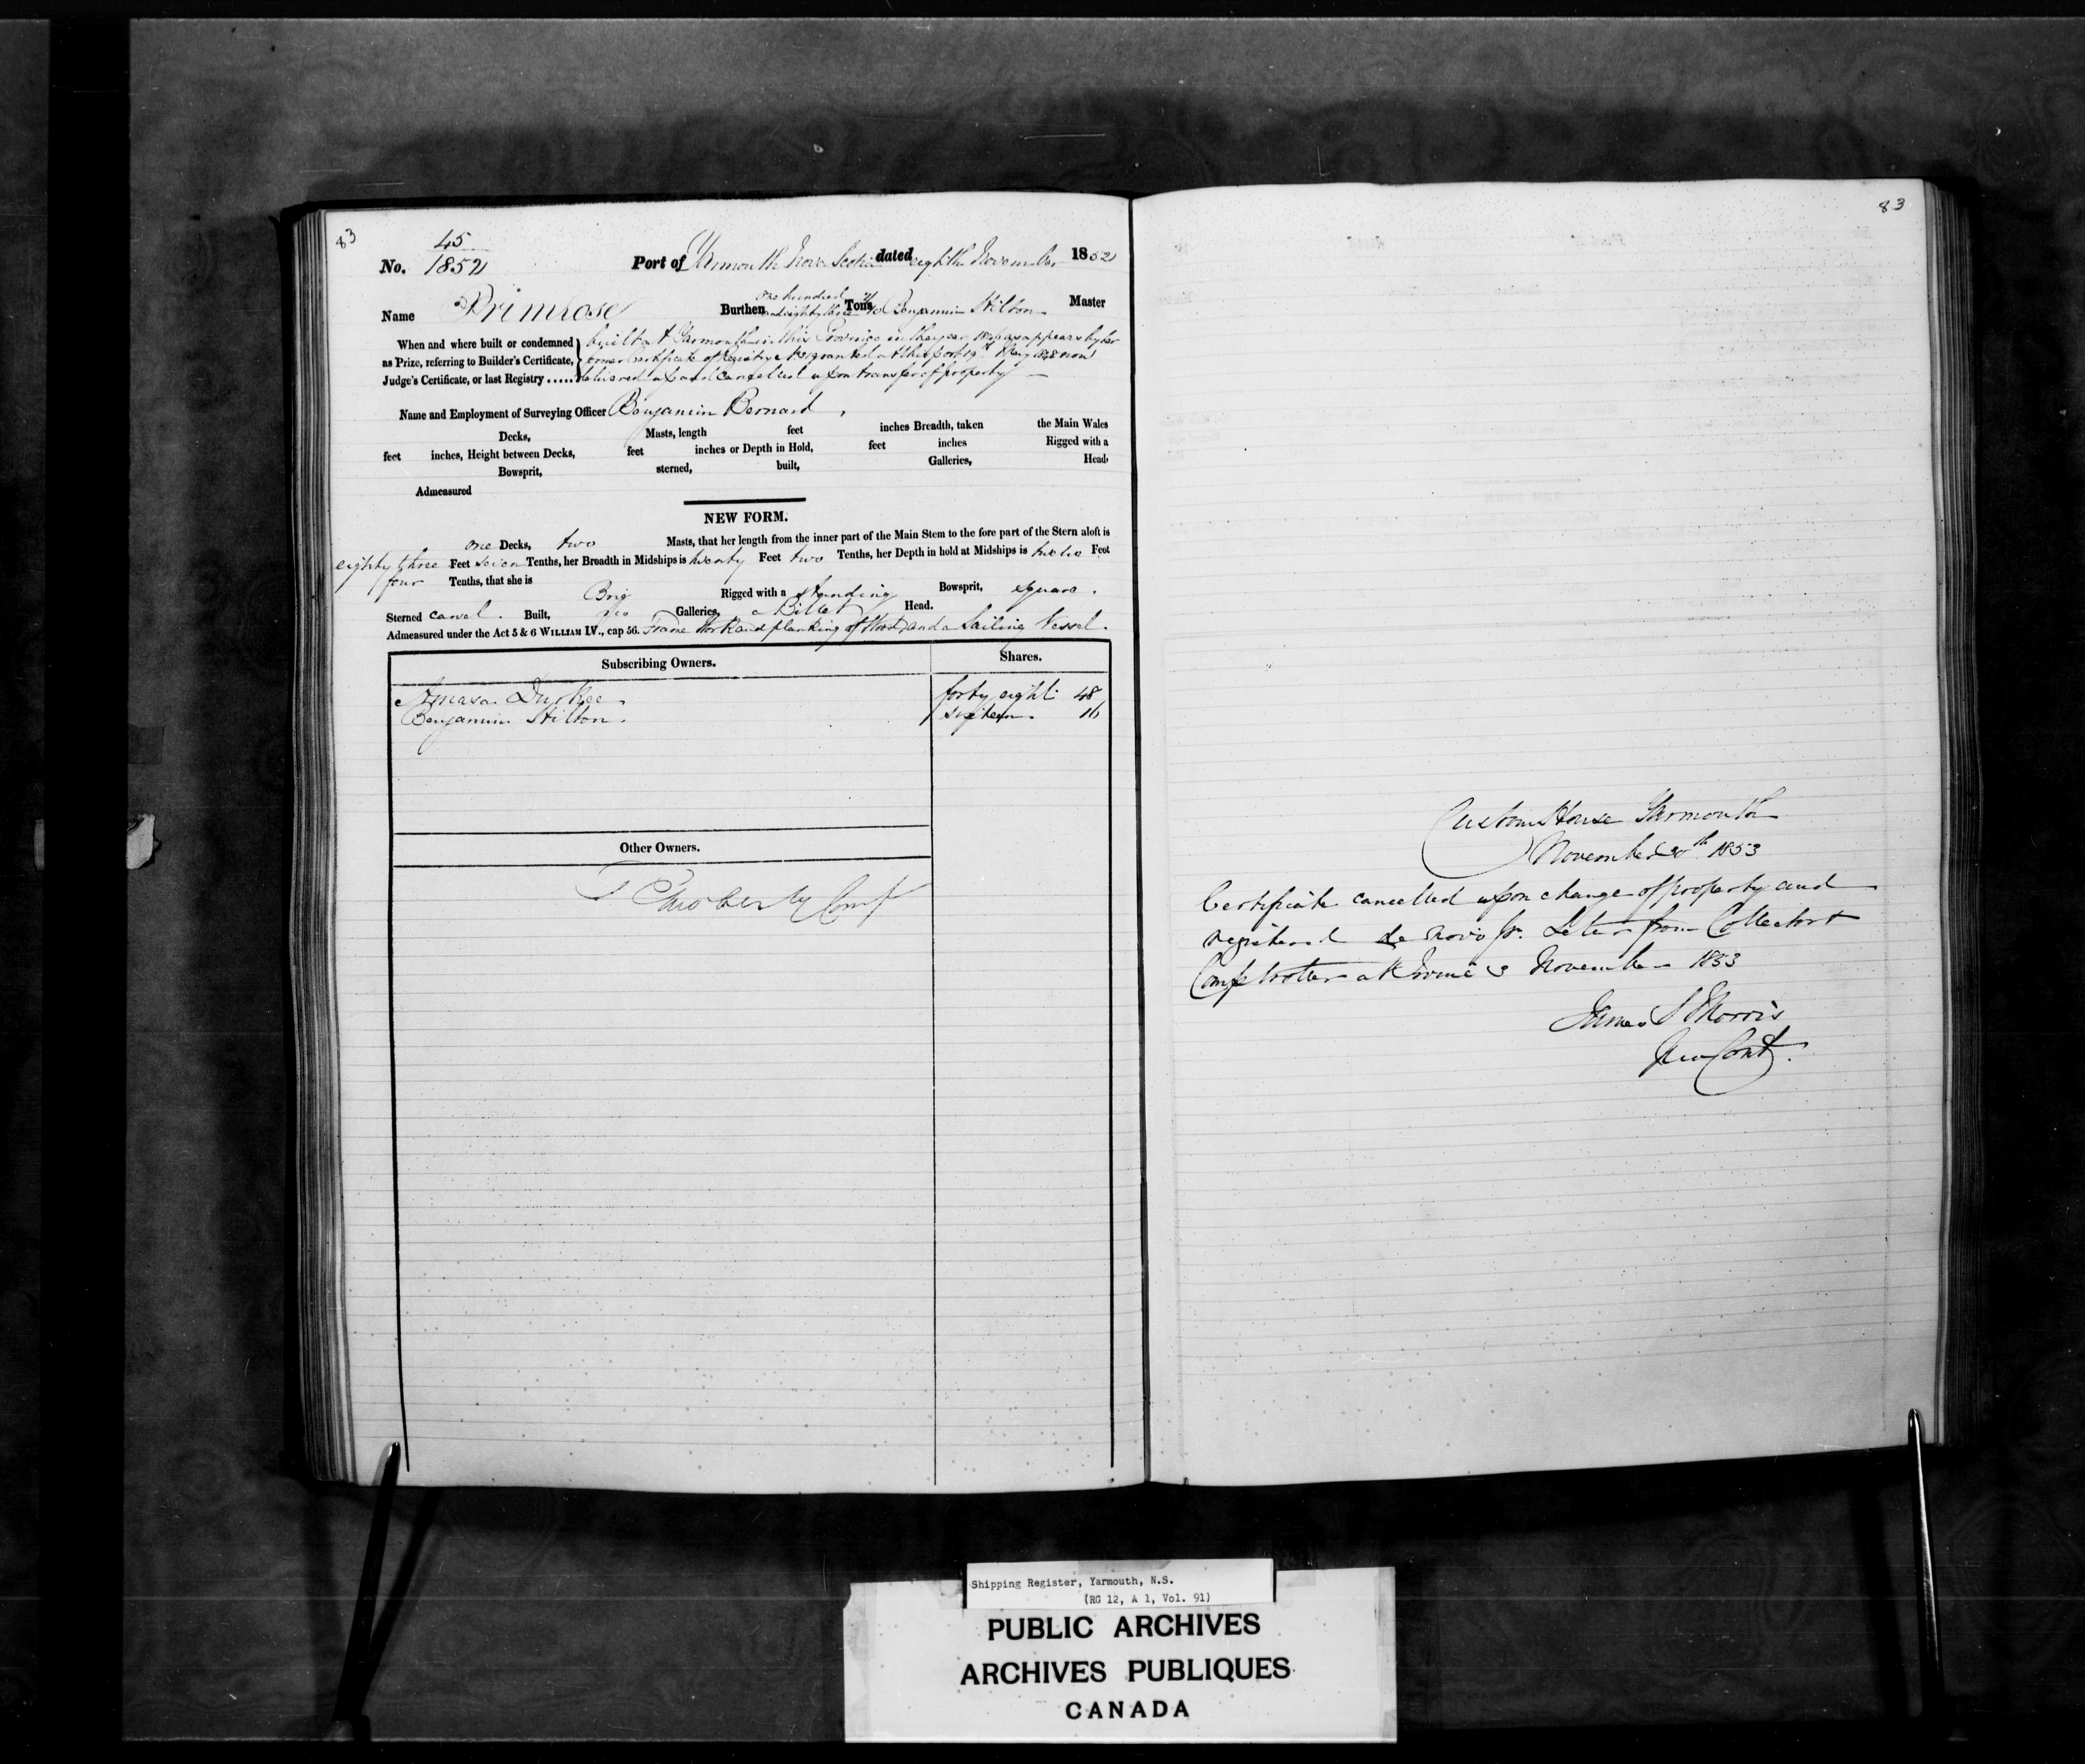 83
45
No. 1852 Port of Yarmouth Nova Scotia dated eighth November 1852
Name Primrose Burthen One hundred and eighty three Tons Benjamin Hilton Master
When and where built or condemned as Prize, referring to Builder's Certificate, Judge's Certificate, or last Registry .....
built at Yarmouth in this Province in the year as appears by her
former Certificate of Registry granted at this port 19th May 1848 now
delivered up and Cancelled upon transfer of property
Name and Employment of Surveying Officer Benjamin Bernard
Decks, Masts, length feet inches Breadth, taken the Main Wales
feet inches, Height between Decks, feet inches or Depth in Hold, feet inches Rigged with a
Bowsprit, sterned, built, Galleries, Head,
Admeasured
NEW FORM.
one Decks, two Masts, that her length from the inner part of the Main Stem to the fore part of the Stern aloft is
eighty three Feet seven Tenths, her Breadth in Midships is twenty Feet two Tenths, her Depth in hold at Midships is twelve Feet
four Tenths, that she is Brig Rigged with a standing Bowsprit, square.
Sterned carvel. Built, no Galleries, a Billet Head.
Admeasured under the Act 5 & 6 WILLIAM IV., cap 56. Frame Work and planking of Wood and a Sailing Vessel.
Subscribing Owners. Shares.
Amasa Durkee forty eight 48
Benjamin Hilton. sixteen 16
Other Owners.
83
Custom House Yarmouth
November 1853
Certificate cancelled upon change of property and
registered de novo Letter from Collector &
Comptroller at November 1853
James S Morris
Shipping Register, Yarmouth, N.S.
(RG 12, A 1, Vol. 91)
PUBLIC ARCHIVES
ARCHIVES PUBLIQUES
CANADA